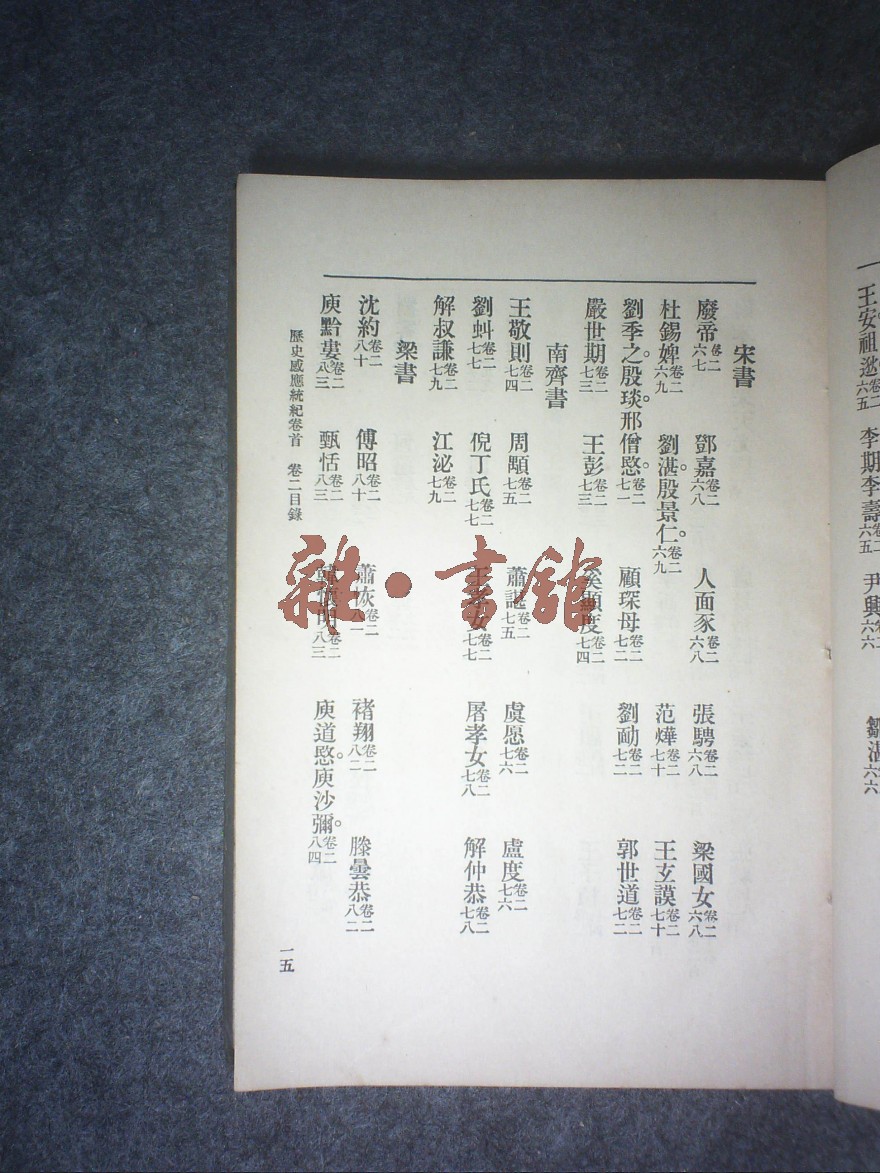 王安祖逖卷二六五 李期李壽卷二六五 尹興卷二六六 鄒湛六六
宋書
廢帝卷二六七 鄧嘉卷二六八 人面豕卷二六八 張騁卷二六八 梁國女卷二六八
杜錫婢卷二六九 劉湛。殷景仁。卷二六九 范燁卷二七十 王玄謨卷二七十
劉季之。殷琰。邢僧愍。卷二七一 顧琛母卷二七二 劉勔卷二七二 郭世道卷二七二
嚴世期卷二七三 王彭卷二七三 奚顯度卷二七四
南齊書
王敬則卷二七四 周顒卷二七五 蕭諶卷二七五 虞愿卷二七六 盧度卷二七六
劉虯卷二七七 倪丁氏卷二七七 王 女卷二七七 屠孝女卷二七八 解仲恭卷二七八
解叔謙卷二七九 江泌卷二七九
梁書
沈約卷二八十 傅昭卷二八十 蕭恢卷二八一 褚翔卷二八二 滕曇恭卷二八二
庾黔婁卷二八三 甄恬卷二八三 韓懷明卷二八三 庾道愍。庾沙彌。卷二八四
歷史感應統紀卷首 卷二目錄
一五
雜·書館